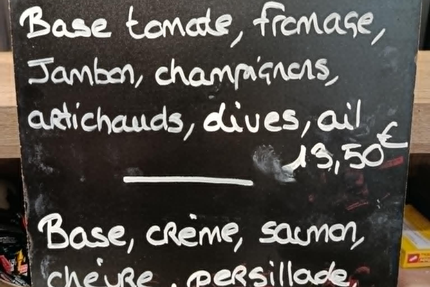 Base tomate, fromage,
Jambon, champignons,
artichauds, olives, ail
13,50€
Base, crème, saumon,
chèvre, persillade,